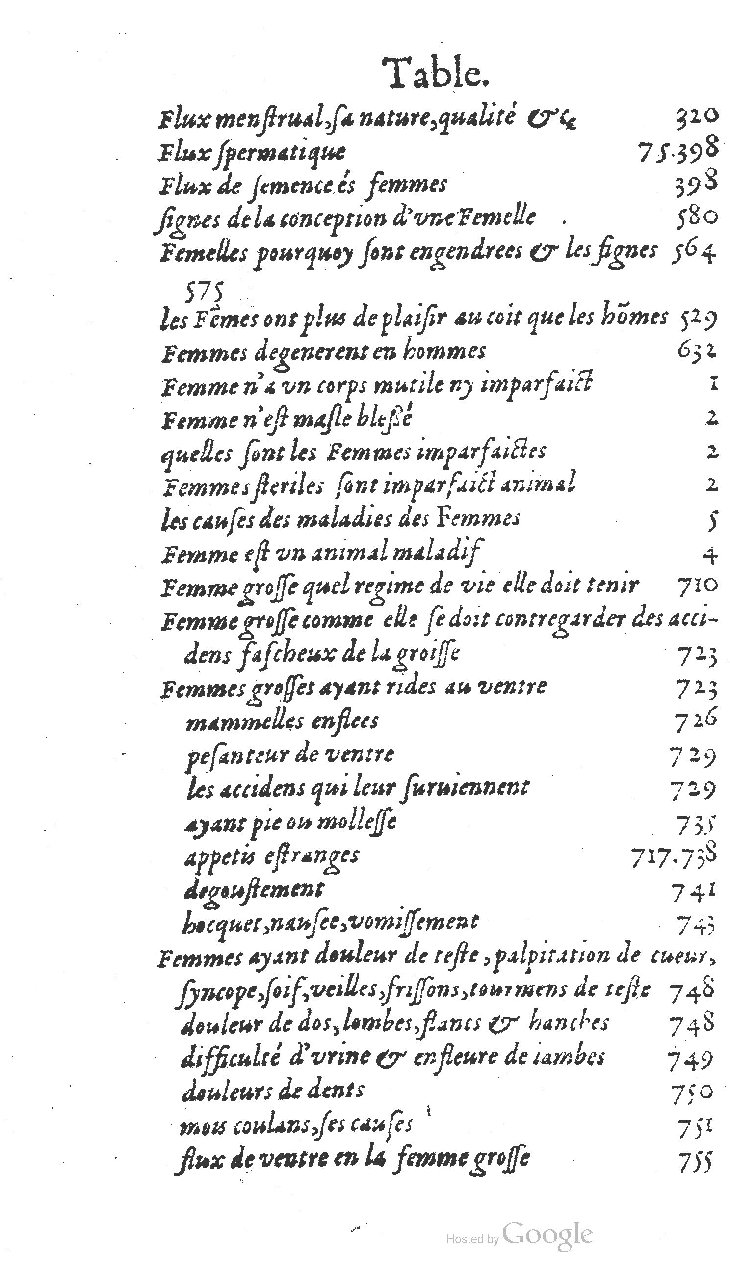 Table.
Flux menſtrual, ſa nature, qualité & ç 320
Flux ſpermatique 75.398
Flux de ſemence és femmes 398
ſignes de la conception d'vne Femelle . 580
Femelles pourquoy ſont engendrees & les ſignes 564
575
les Fẽmes ont plus de plaiſir au coit que les hõmes 529
Femmes degenerent en hommes 632
Femme n'a vn corps mutile ny imparfaict 1
Femme n'eſt maſle bleßé 2
quelles ſont les Femmes imparfaictes 2
Femmes ſteriles ſont imparfaict animal 2
les cauſes des maladies des Femmes 5
Femme eſt vn animal maladif 4
Femme groſſe quel regime de vie elle doit tenir 710
Femme groſſe comme elle ſe doit contregarder des acci-
dens faſcheux de la groiſſe 723
Femmes groſſes ayant rides au ventre 723
mammelles enflees 726
peſanteur de ventre 729
les accidens qui leur ſuruiennent 729
ayant pie ou molleſſe 735
appetis eſtranges 717.738
degouſtement 741
hocquet, nauſee, vomiſſement 743
Femmes ayant douleur de teſte, palpitation de cueur,
ſyncope, ſoif, veilles, friſſons, tourmens de teſte 748
douleur de dos, lombes, flancs & hanches 748
difficulté d'vrine & enfleure de iambes 749
douleurs de dents 750
mois coulans, ſes cauſes 751
flux de ventre en la femme groſſe 755
Hosted by Google